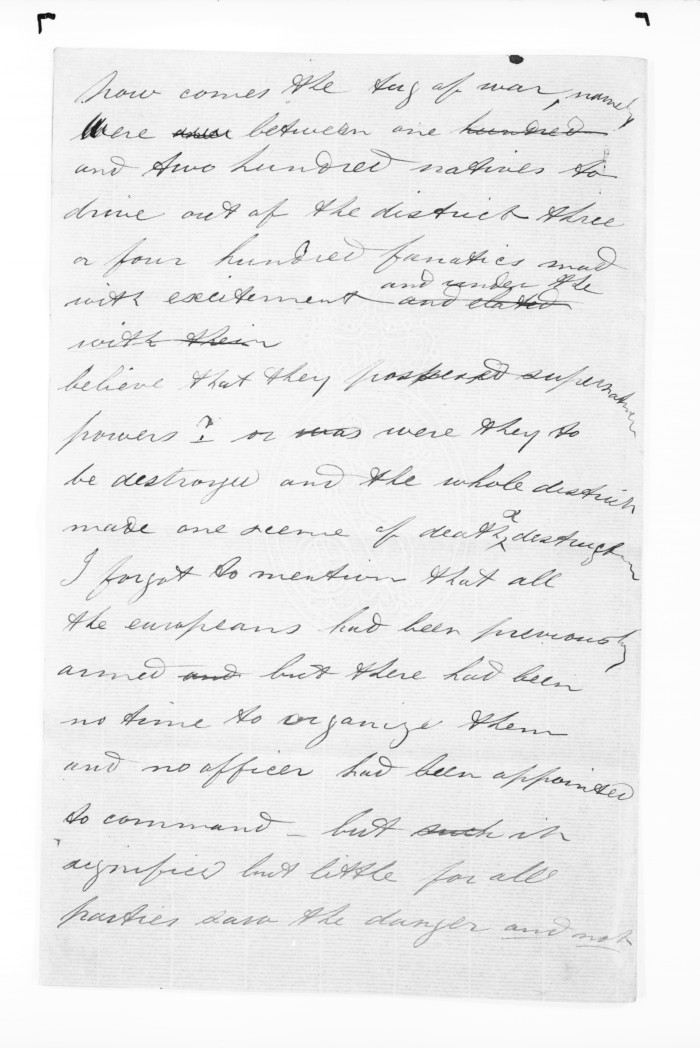 now comes the tug of war, namely
Were between one hundred
and two hundred natives to
drive out of the district three
or four hundred fanatics mad
and under the
with excitement and elated
with their
believe that they possessed supernatural
powers? or was were they to
be destroyed and the whole district
made one scene of death & destruction
I forgot to mention that all
the europeans had been previously
armed and but there had been
no time to organize them
and no officer had been appointed
to command - but such it
signified but little for all
parties saw the danger and not